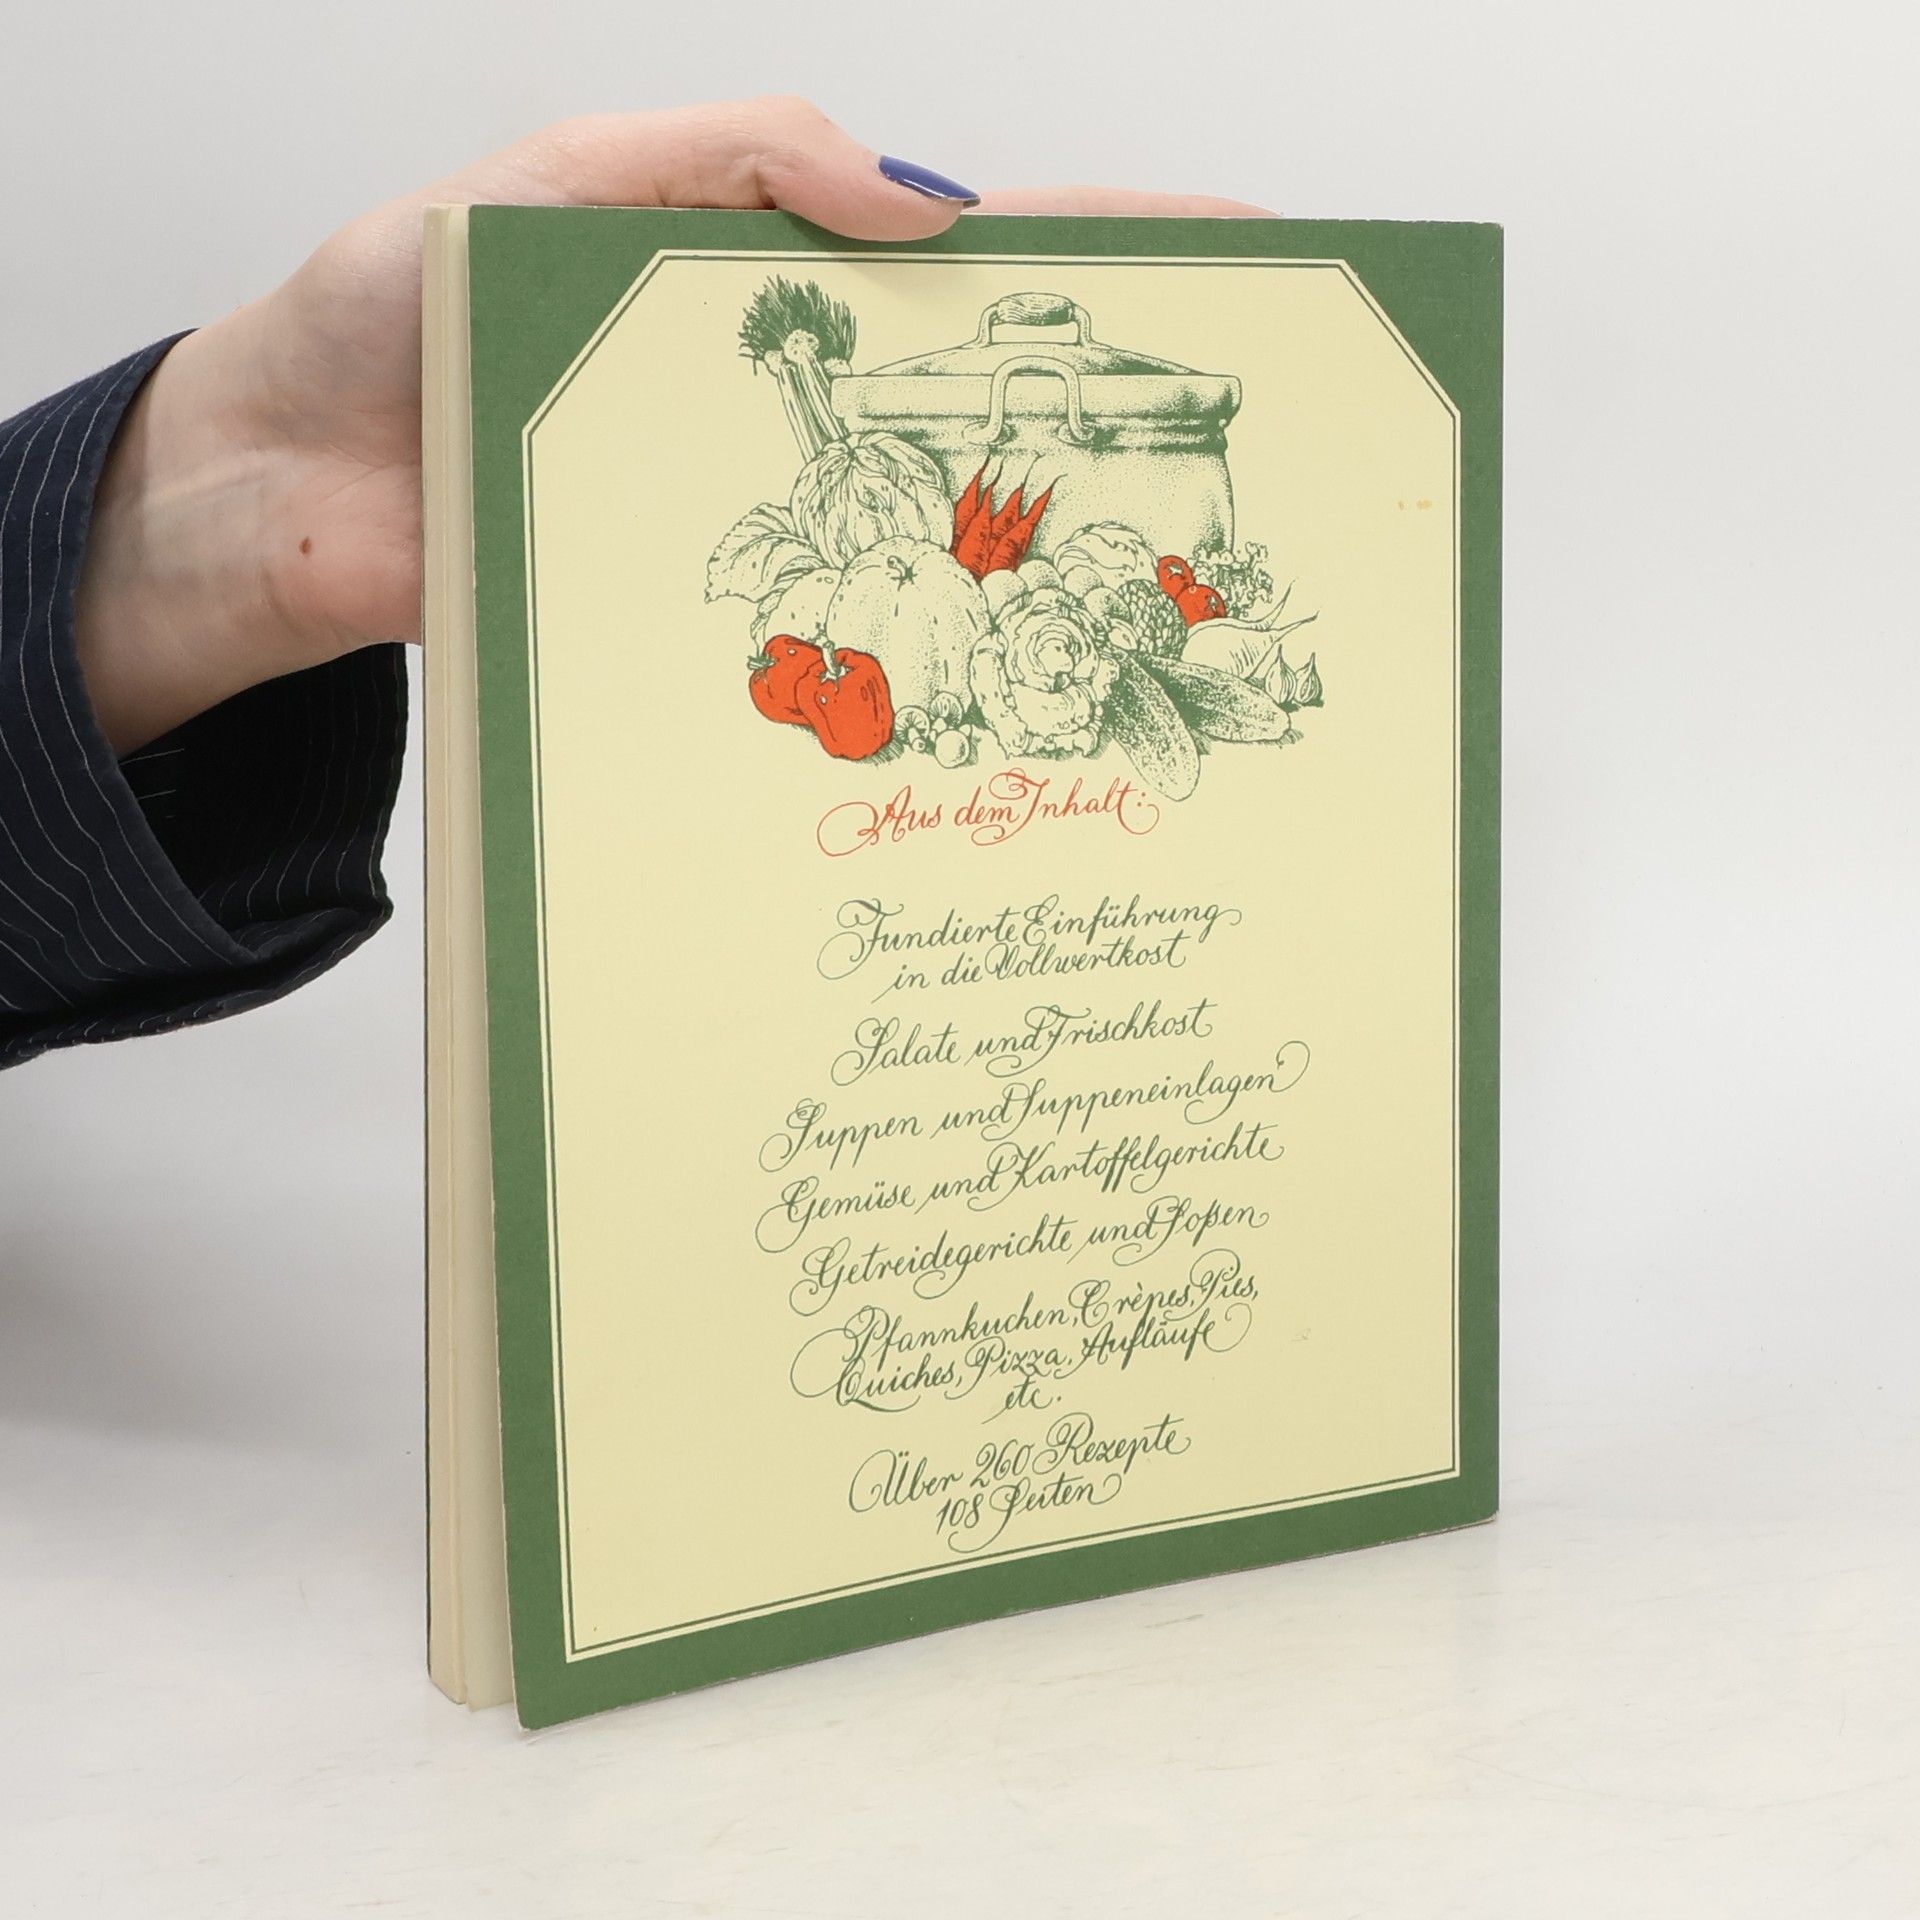 Aus dem Inhalt:
Fundierte Einführung
in die Vollwertkost
Salate und Frischkost
Suppen und Suppeneinlagen
Gemüse und Kartoffelgerichte
Getreidegerichte und Soßen
Pfannkuchen, Crèpes, Pies,
Quiches, Pizza, Aufläufe
etc.
Über 260 Rezepte
108 Seiten